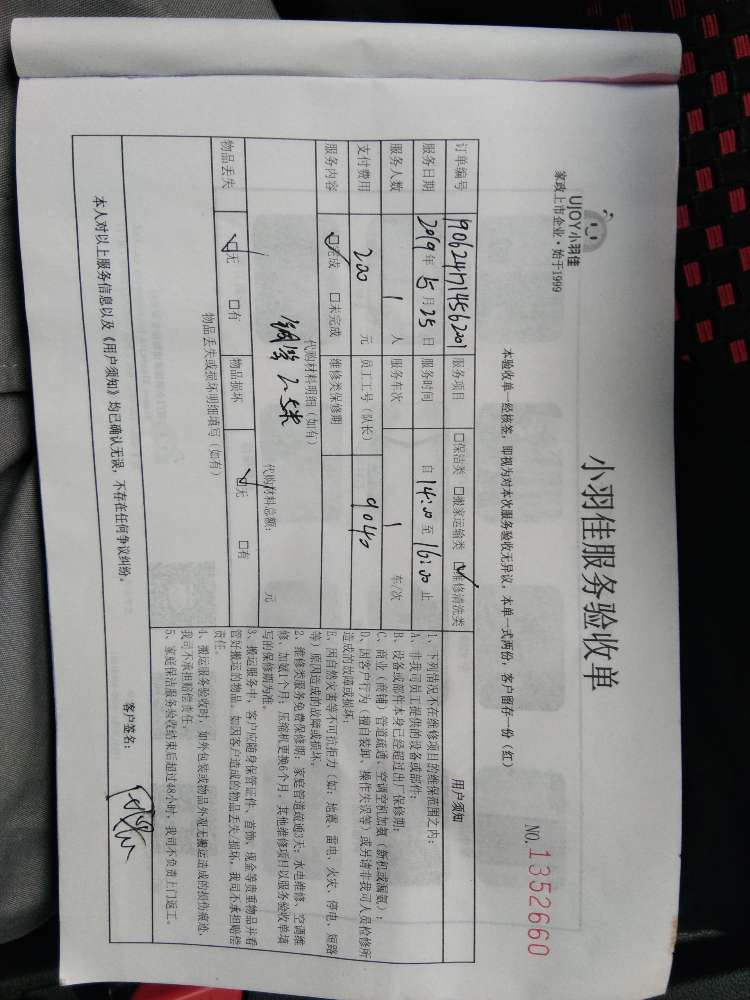 UJOY小羽佳
家政上市企业·始于1999
小羽佳服务验收单
NO. 1352660
本验收单一经核签，即视为对本次服务验收无异议，本单一式两份，客户留存一份（红）
订单编号 服务项目 □保洁类 □搬家运输类 ☑维修清洗类
服务日期 2019年5月25日 服务时间 自14:00至16:00止
服务人数 1人 服务车次 1 车/次
支付费用 200元 员工工号（队长） 9040
服务内容 ☑完成 □未完成 维修类保修期
代购材料明细（如有）
2.5米
代购材料总额： 元
物品丢失 ☑无 □有 物品损坏 ☑无 □有
物品丢失或损坏明细填写（如有）
用户须知
1、下列情况不在维修项目的维保范围之内：
A、非我司员工提供的设备或部件；
B、设备或部件本身已经超过出厂保修期；
C、商业（商铺）管道疏通、空调空机加氨（新机或漏氨）；
D、因客户行为（擅自装卸、操作失误等）或另请非我司人员检修所
造成的故障或损坏；
E、因自然灾害等不可抗拒力（如：地震、雷电、火灾、停电、短路
等）原因造成的故障或损坏。
2、维修类服务免费保修期：家庭管道疏通3天；水电维修、空调维
修、加氨1个月；压缩机更换6个月，其他维修项目以服务验收单填
写的保修期为准。
3、搬运服务中，客户应随身保管证件、首饰、现金等贵重物品并看
管好搬运的物品。如因客户造成的物品丢失/损坏，我司不承担赔偿
责任。
4、搬运服务验收时，如外包装或物品外观无搬运造成的损伤痕迹，
我司不承担赔偿责任。
5、家庭保洁服务验收结束后超过48小时，我司不负责上门返工。
本人对以上服务信息以及《用户须知》均已确认无误，不存在任何争议纠纷。
客户签名：